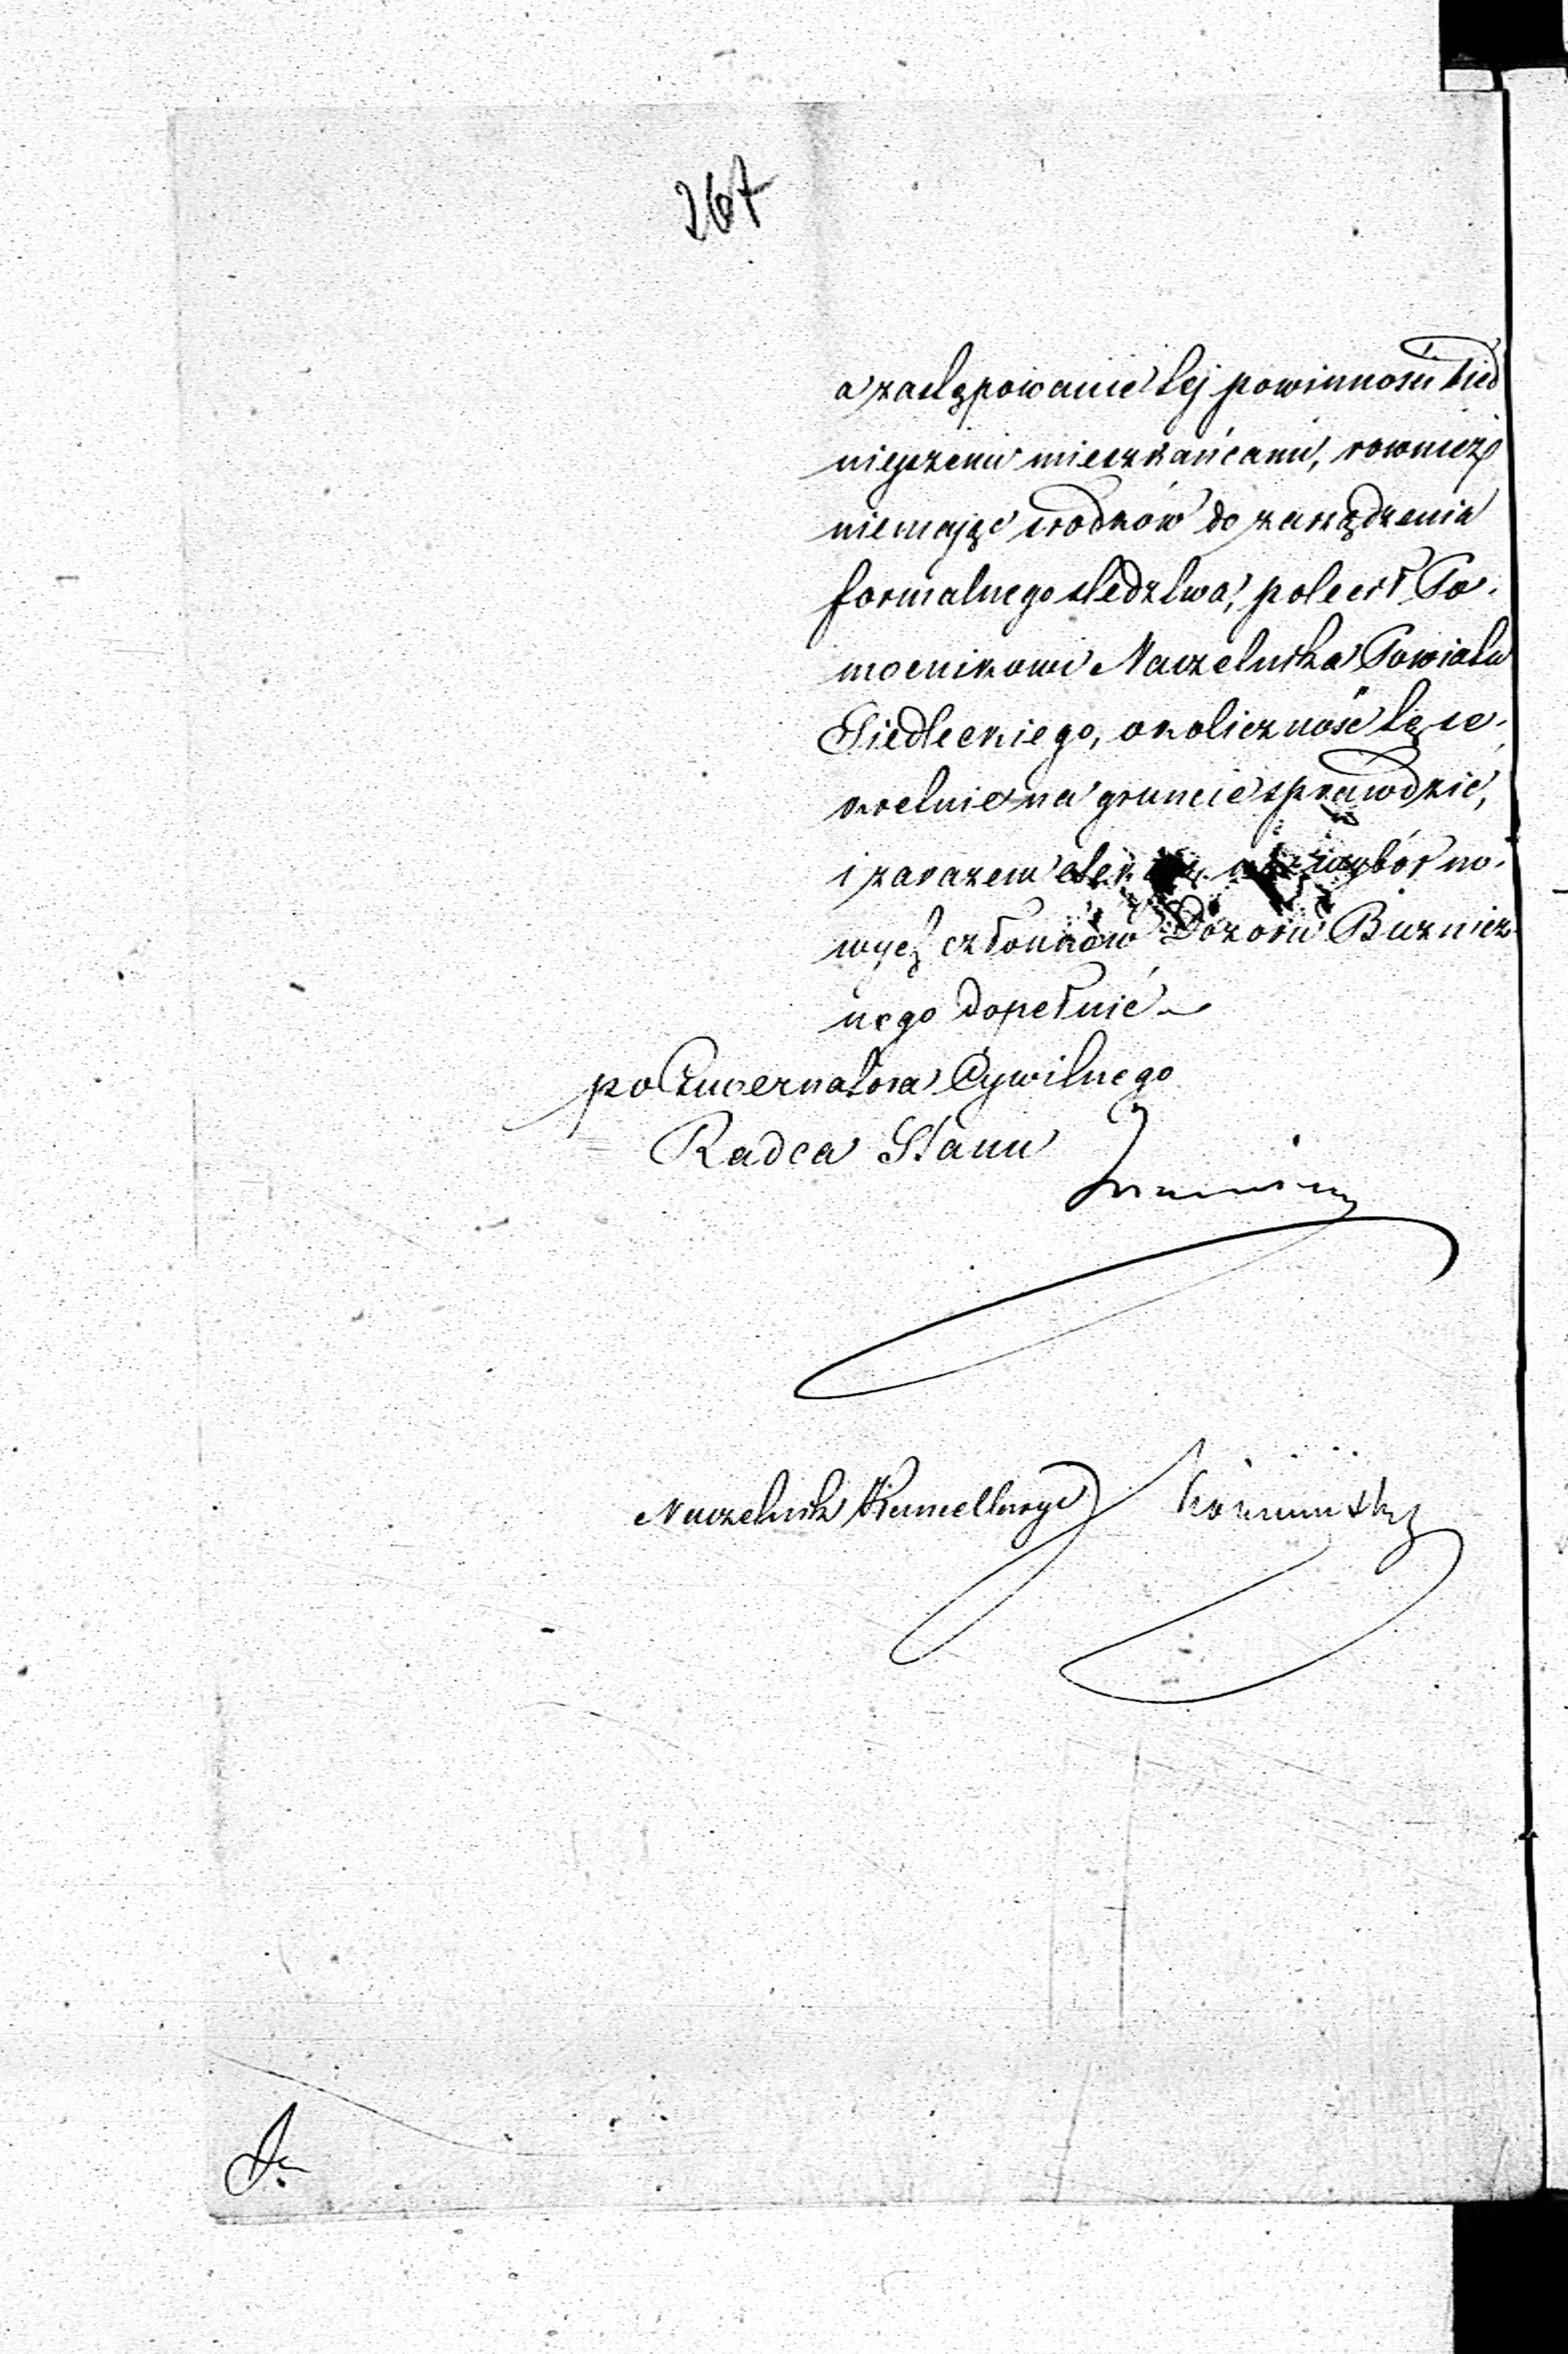 267
a zastępowanie tej powinności bied
niejszemi mieszkańcami, rownież
niemając srodków do zarządzenia
formalnego sledztwa, polecił Po-
mocnikowi Naczelnika Powiatu
Siedleckiego, okoliczność tę se-
kretnie na gruncie sprawdzić,
i zarazem wybór no-
wych członków Dozoru Bużnicz
nego dopełnić
po Gubernatora Cywilnego
Radca Stanu
Naczelnik Kancellaryi